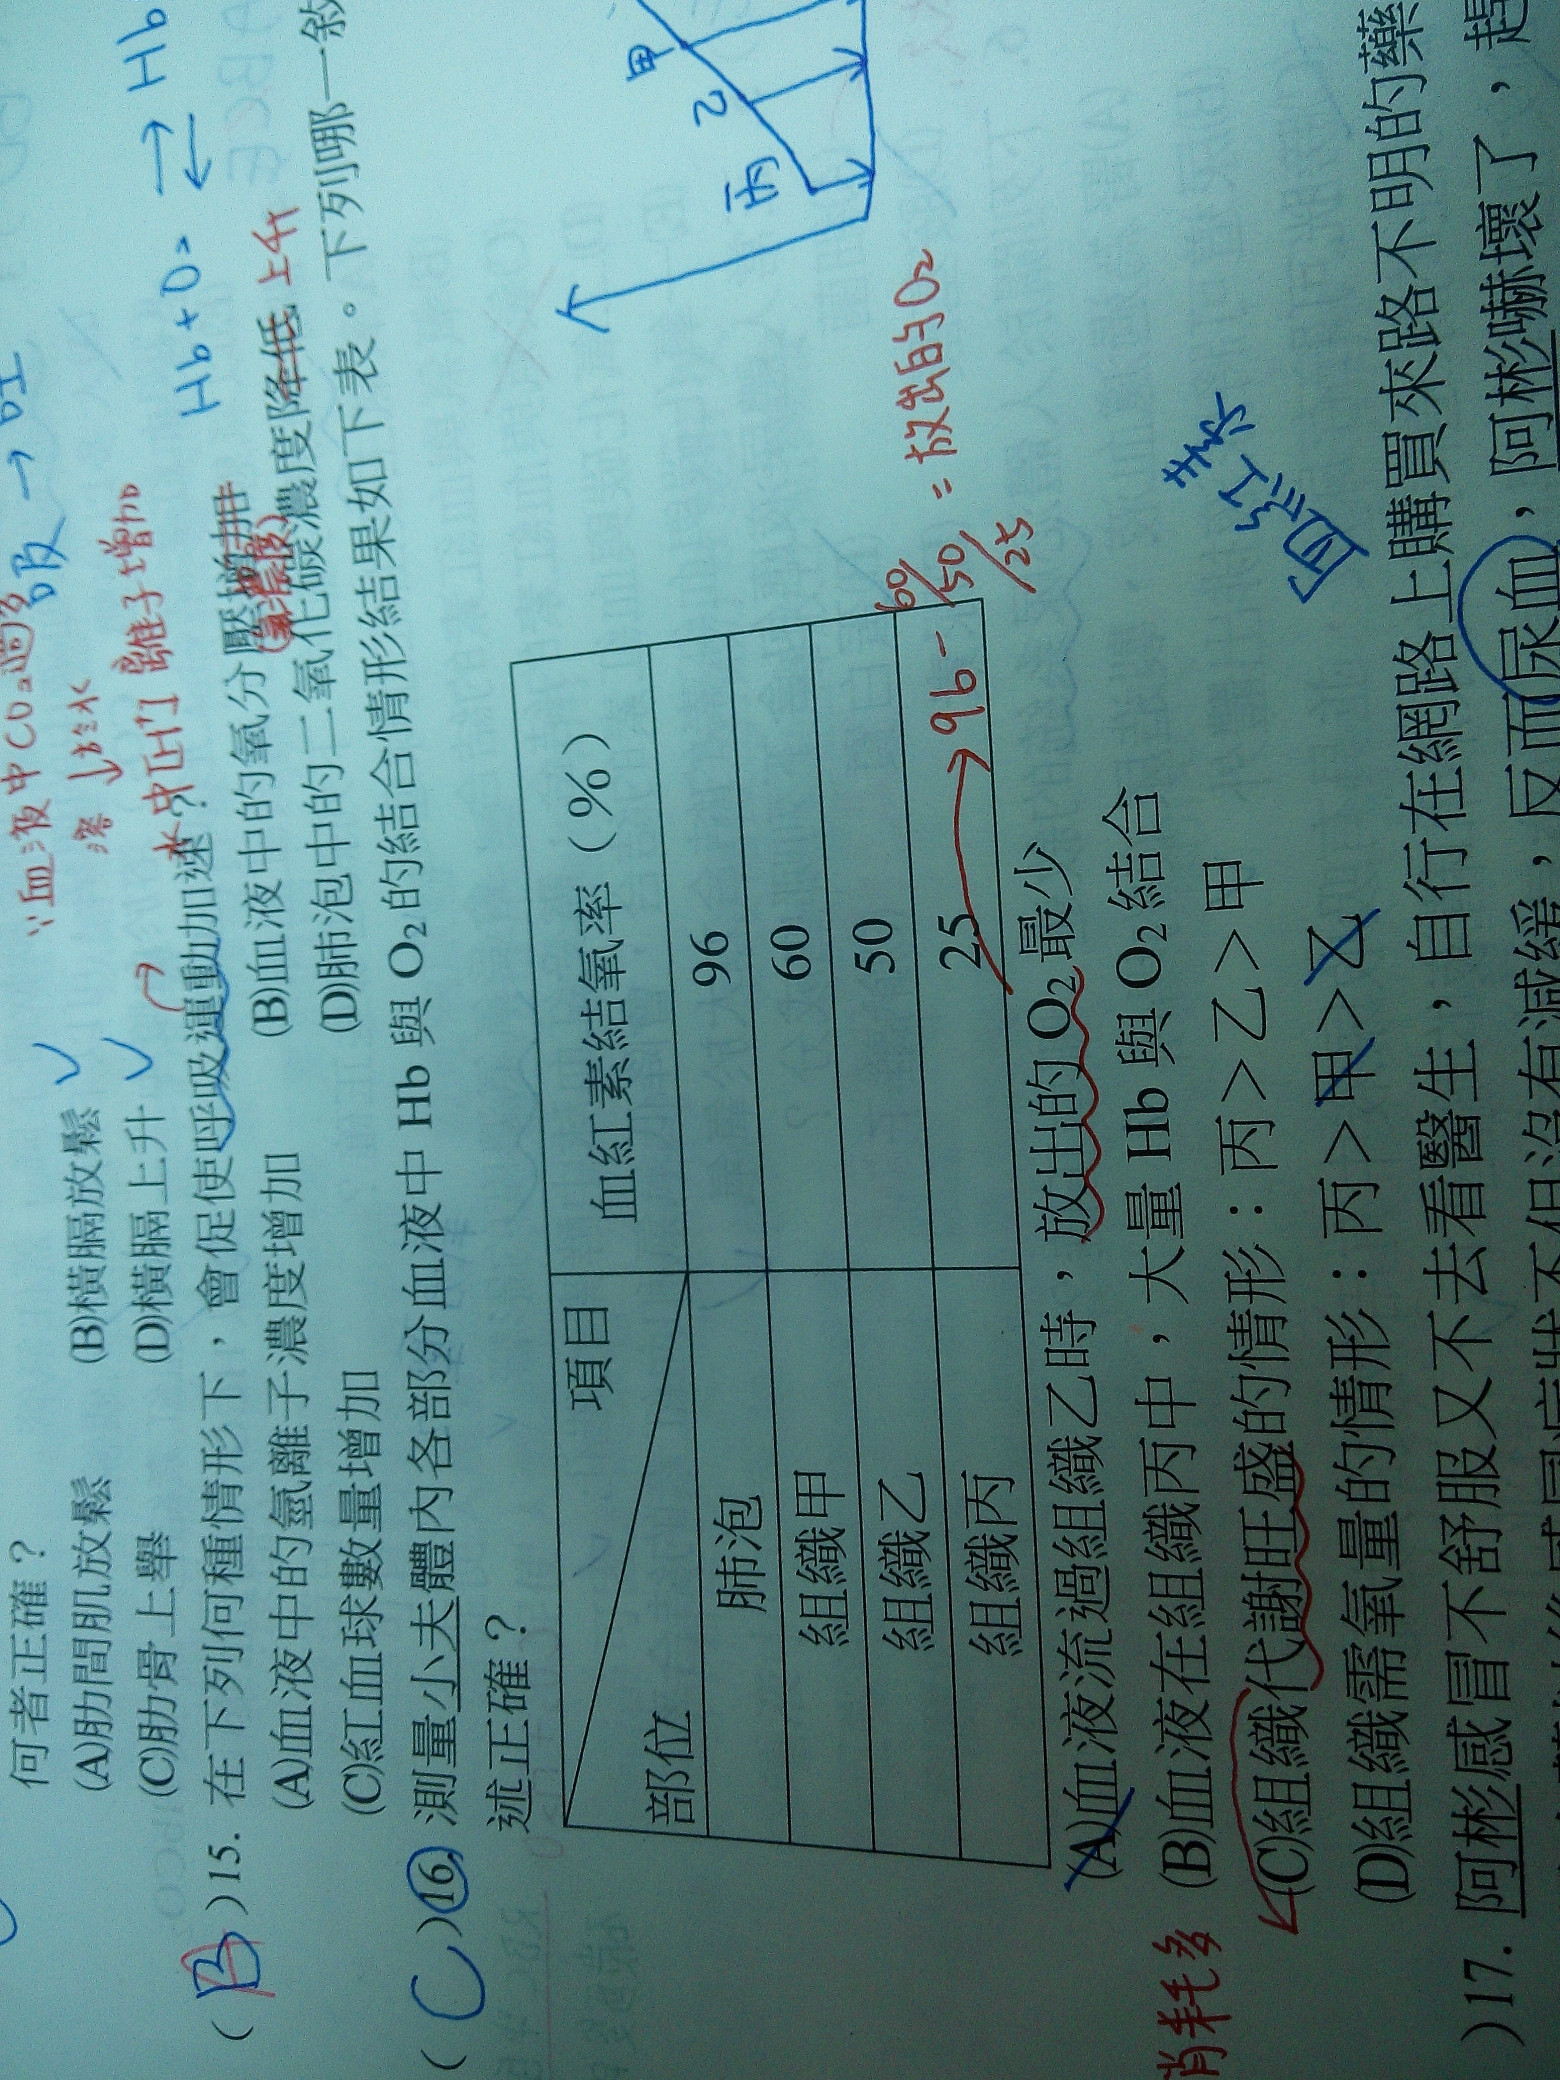 何者正確？
(A)肋間肌放鬆 (B)橫膈放鬆
(C)肋骨上舉 (D)橫膈上升
∵血液中CO₂過多
溶↓於水
水中[H⁺] 離子增加
吸→
Hb+O₂ ⇄ Hb
(B)15. 在下列何種情形下，會促使呼吸運動加速？
(A)血液中的氫離子濃度增加 (B)血液中的氧分壓增
(C)紅血球數量增加 (D)肺泡中的二氧化碳濃度降低 上升
(C)16. 測量小夫體內各部分血液中 Hb 與 O₂的結合情形結果如下表。下列哪一敘
述正確？
部位 項目 血紅素結氧率（%）
肺泡 96
組織甲 60
組織乙 50
組織丙 25
96- 60/50/25 = 放出的O₂
甲
乙
丙
血紅素
(A)血液流過組織乙時，放出的O₂最少
(B)血液在組織丙中，大量 Hb 與 O₂結合
(C)組織代謝旺盛的情形：丙＞乙＞甲
消耗多
(D)組織需氧量的情形：丙＞甲＞乙
)17. 阿彬感冒不舒服又不去看醫生，自行在網路上購買來路不明的藥
反而尿血，阿彬嚇壞了，趕